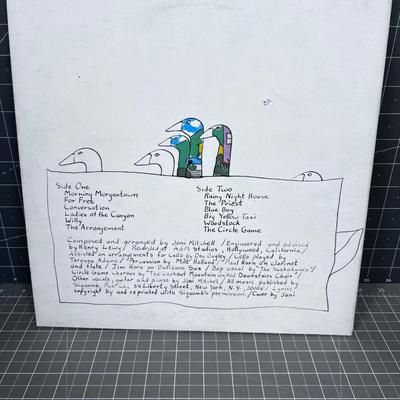 Side One
Morning Morgantown
For Free
Conversation
Ladies of the Canyon
Willy
The Arrangement
Side Two
Rainy Night House
The Priest
Blue Boy
Big Yellow Taxi
Woodstock
The Circle Game
Composed and arranged by Joni Mitchell / Engineered and advised
by Henry Lewy / Recorded at A&M Studios, Hollywood, California/
Assisted on arrangements for Cello by Don Bagley / Cello played by
Teressa Adams / Percussion by Milt Holland / Paul Horn on clarinet
and flute / Jim Horn on Baritone Sax / Bop vocal by "The Saskatunes"/
Circle Game chorus by "The Lookout Mountain United Downstairs Choir"/
Other vocals, guitar and piano by Joni Mitchell / All music published by
Siquomb, Pub. 55 Liberty Street, New York, N.Y. 10005/ Lyrics
copyright by and reprinted with Siquomb's permission./Cover by Joni